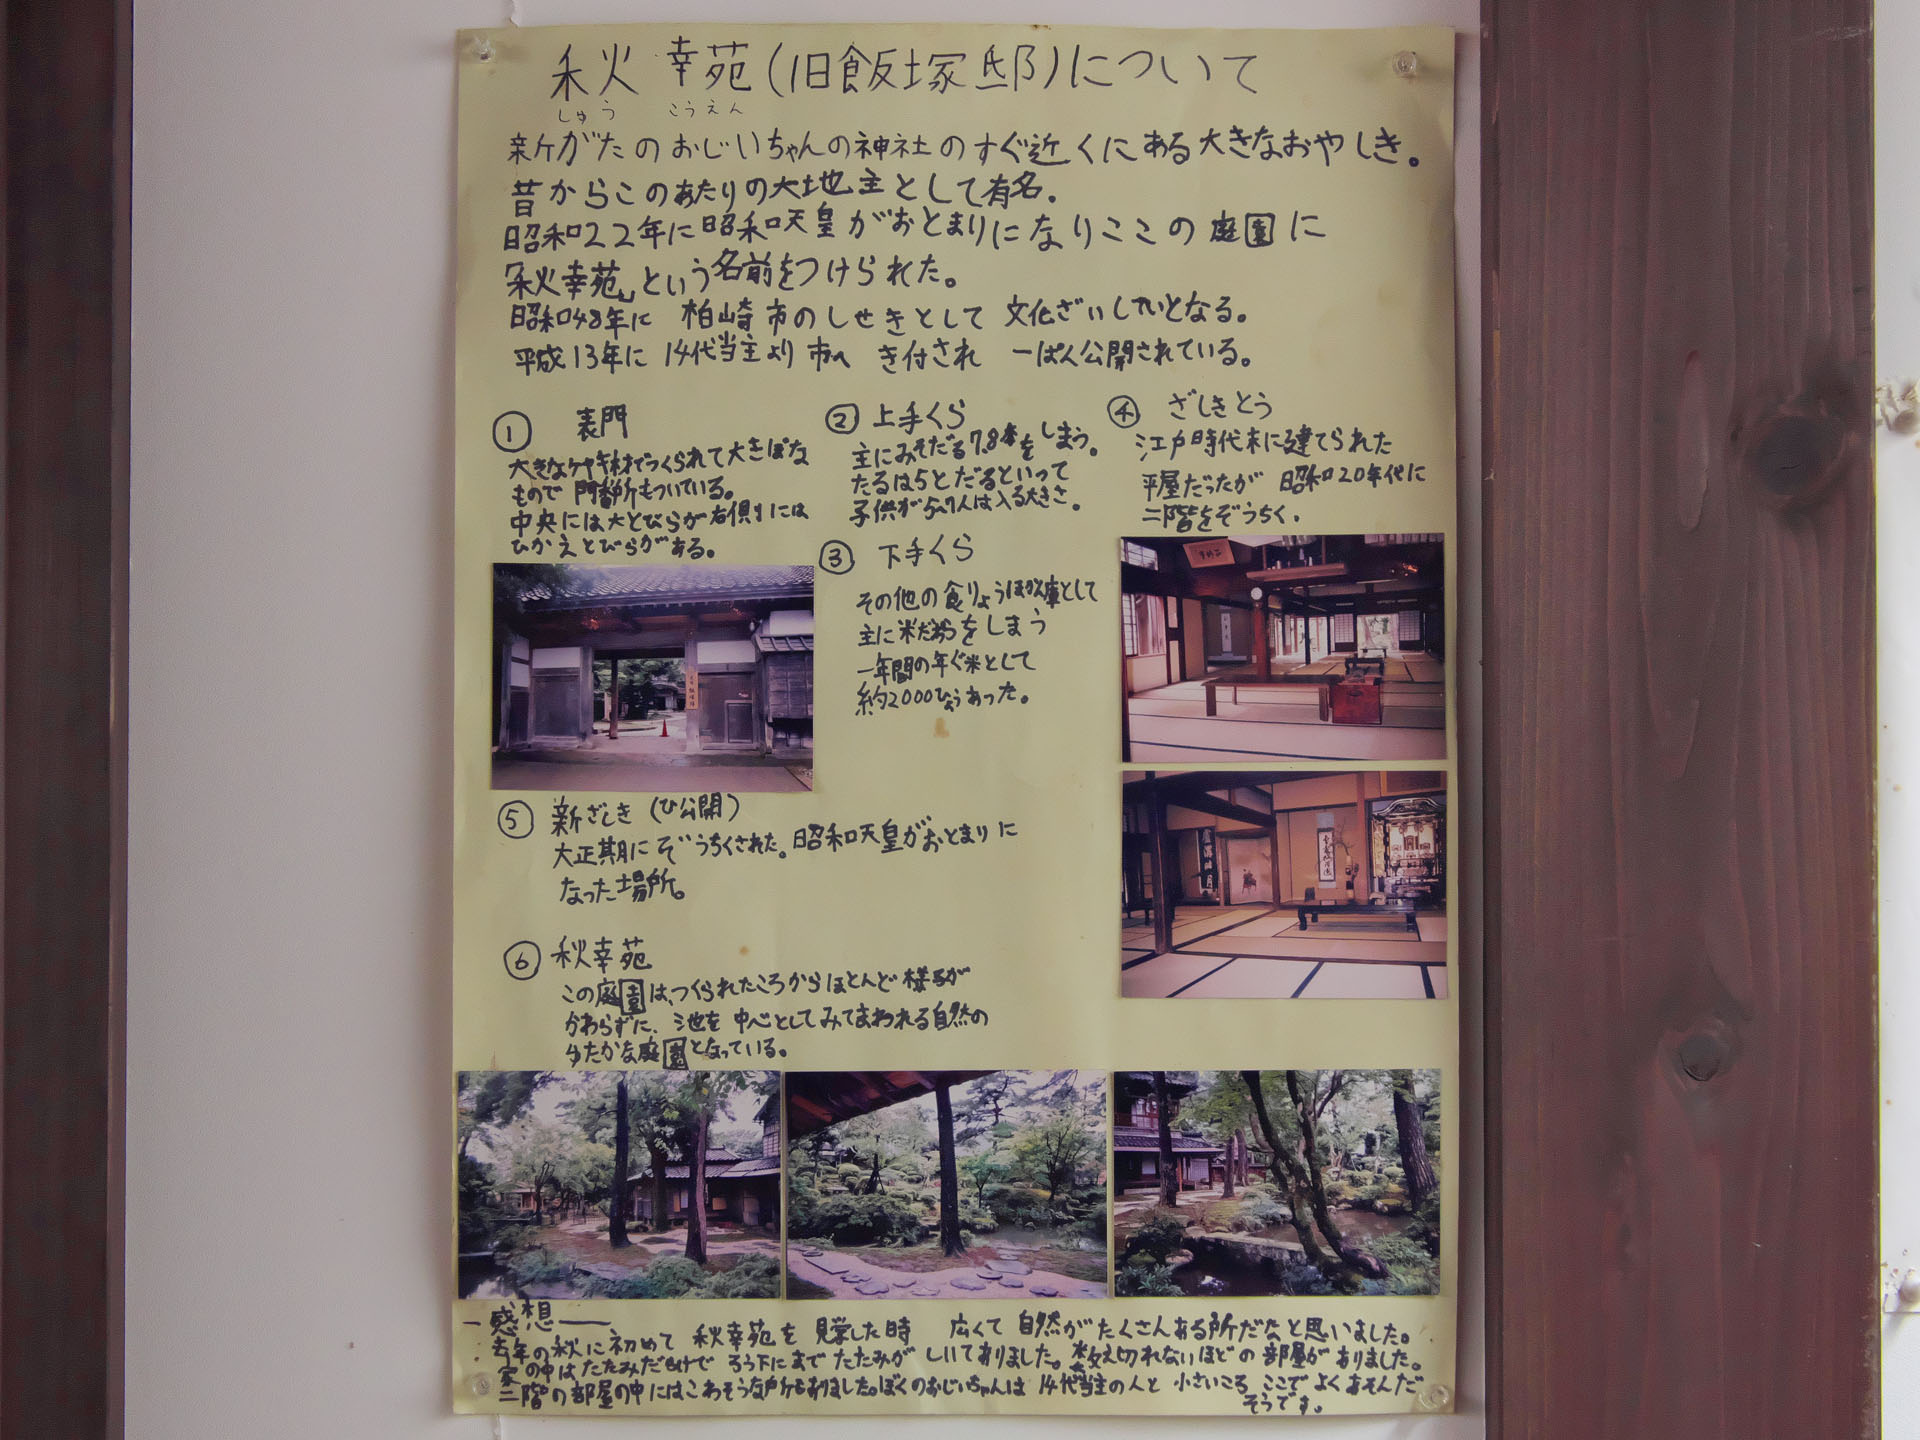 秋幸苑(旧飯塚邸)について
しゅう こうえん
新がたのおじいちゃんの神社のすぐ近くにある大きなおやしき。
昔からこのあたりの大地主として有名.
昭和22年に昭和天皇がおとまりになりここの庭園に
「秋幸苑」という名前をつけられた。
昭和48年に 柏崎市のしせきとして 文化ざいしていとなる。
平成13年に 14代当主より 市へ き付され 一ぱん公開されている。
① 表門
大きなケヤキ材でつくられて大きぼな
もので 門番所もついている。
中央には大とびらが右側りには
ひかえとびらがある。
② 上手くら
主にみそだる7.8本をしまう。
たるは5とだるといって
子供が5〜7人は入る大きさ。
③ 下手くら
その他の食りょうほかん庫として
主に米だわらをしまう
一年間の年ぐ米として
約2000ひょうあった。
④ ざしきとう
江戸時代末に建てられた
平屋だったが 昭和20年代に
二階をぞうちく.
⑤ 新ざしき (ひ公開)
大正期にぞうちくされた。昭和天皇がおとまりに
なった場所。
⑥ 秋幸苑
この庭園は、つくられたころからほとんど様子が
かわらずに、池を中心としてみてまわれる自然の
ゆたかな庭園となっている。
ー感想ー
去年の秋に初めて 秋幸苑を 見学した時 広くて 自然がたくさんある所だなと思いました。
家の中はたたみだらけで ろう下にまでたたみがしいてありました。数え切れないほどの部屋がありました。
二階の部屋の中にはこわそうな所もありました。ぼくのおじいちゃんは14代当主の人と 小さいころ ここで よくあそんだ
そうです。